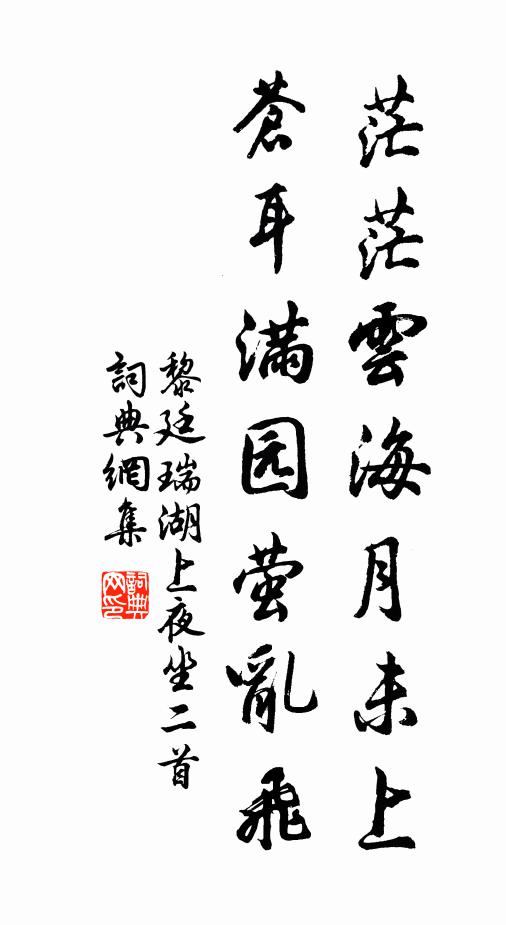 茫茫雲海月未上
蒼耳满园萤亂飛
黎廷瑞湖上夜坐二首
詞典網集
詞典网印